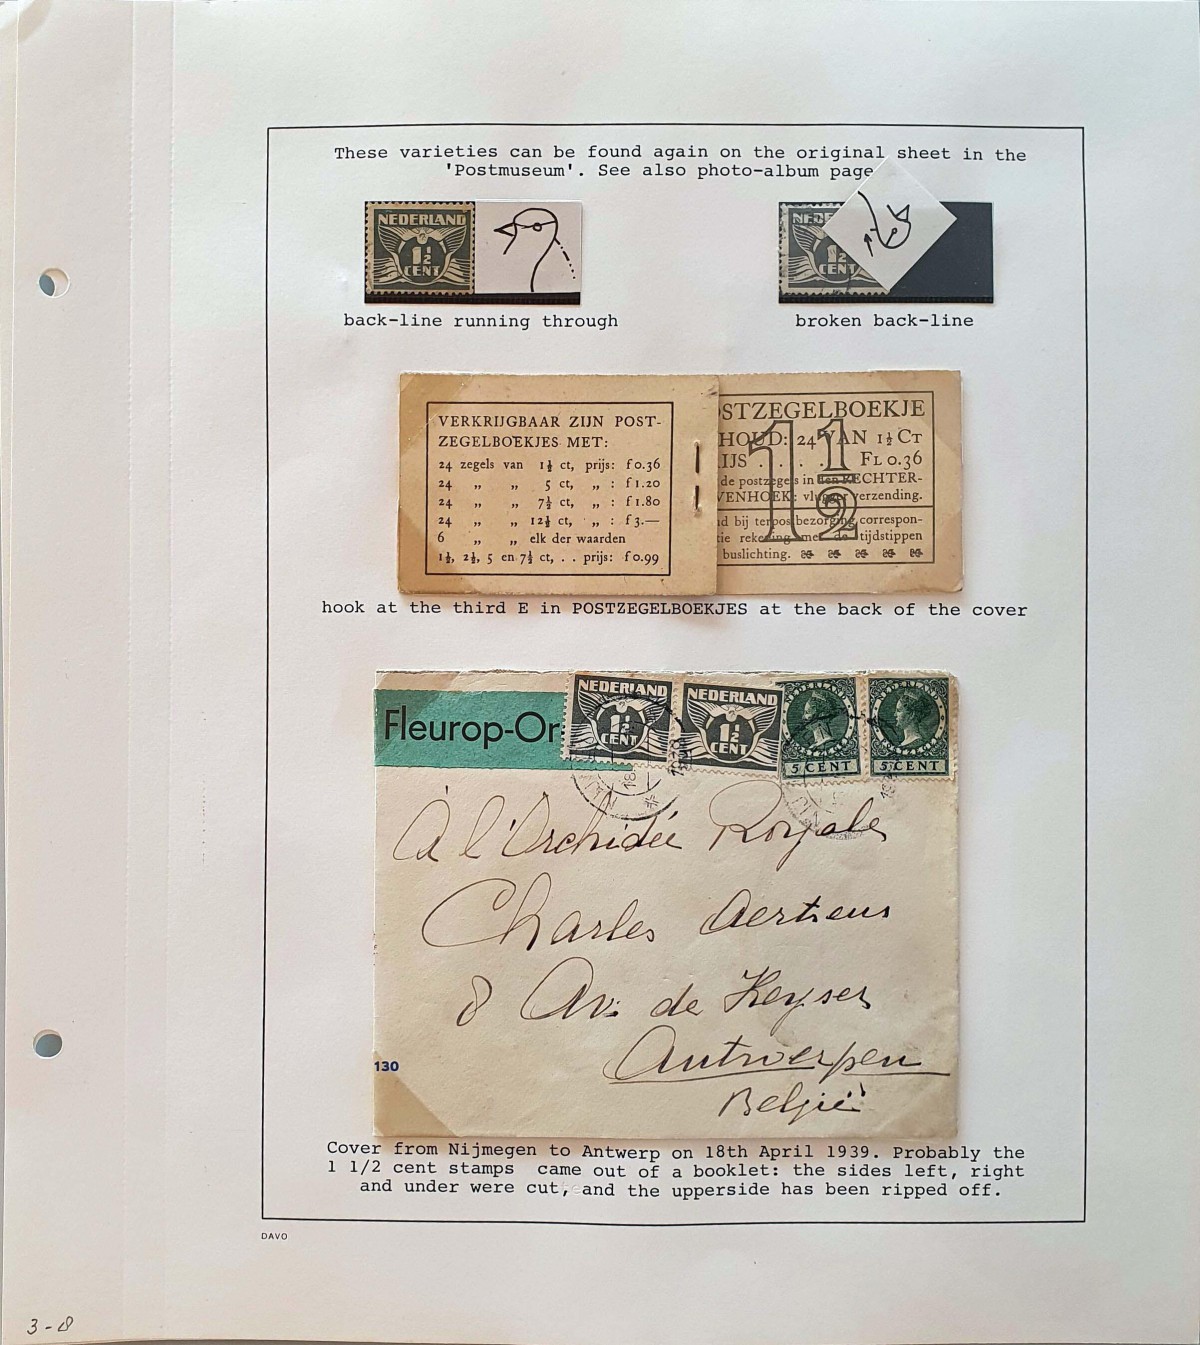 These varieties can be found again on the original sheet in the
'Postmuseum'. See also photo-album page
NEDERLAND
1½
CENT
NEDE
1½
CENT
back-line running through
broken back-line
VERKRIJGBAAR ZIJN POST-
ZEGELBOEKJES MET:
24 zegels van 1½ ct, prijs: f 0.36
24 „ „ 5 ct, „ : f 1.20
24 „ „ 7½ ct, „ : f 1.80
24 „ „ 12½ ct, „ : f 3.—
6 „ „ elk der waarden
1½, 2½, 5 en 7½ ct, . . prijs: f 0.99
OSTZEGELBOEKJE
HOUD: 24 VAN 1½ CT
IJS . . . . . FL 0.36
1½
de postzegels in den RECHTER-
VENHOEK: vlugger verzending.
d bij terpostbezorging correspon-
tie rekening met de tijdstippen
buslichting.
hook at the third E in POSTZEGELBOEKJES at the back of the cover
Fleurop-Or
NEDERLAND
1½
CENT
NEDERLAND
1½
CENT
NEDERLAND
5 CENT
NEDERLAND
5 CENT
À l'Orchidée Royale
Charles Aertsens
8 Av. de Keyser
Antwerpen
België
130
Cover from Nijmegen to Antwerp on 18th April 1939. Probably the
1 1/2 cent stamps came out of a booklet: the sides left, right
and under were cut, and the upperside has been ripped off.
DAVO
3-8